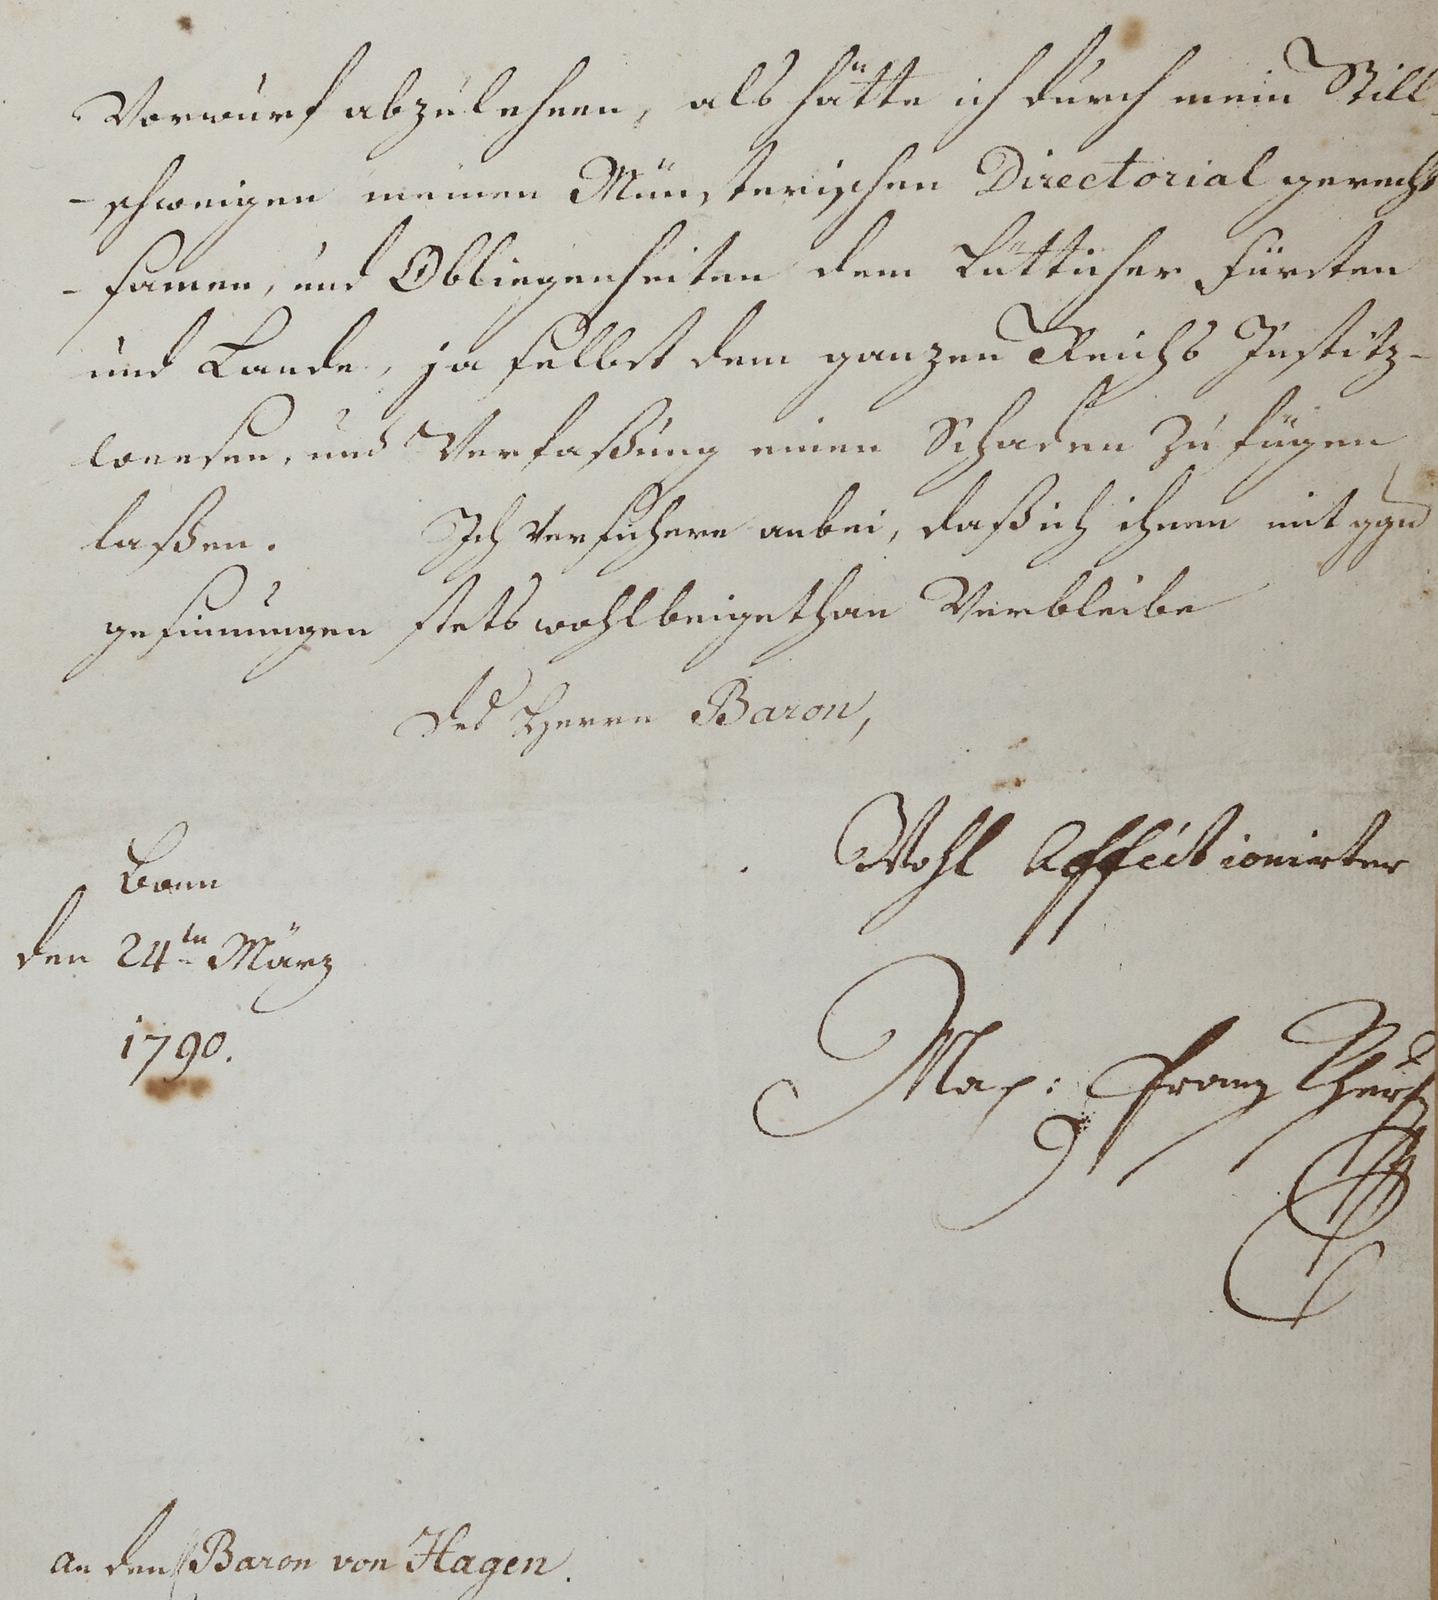 Vorwurf abzulehnen, als hätte ich durch mein Still-
-schweigen meinen Münsterischen Directorial gerecht
-samen, und Obliegenheiten dem Lütticher Fürsten
und Lande, ja selbst dem ganzen Reichs Justitz-
weesen, und Verfaßung einen Schaden zu fügen
laßen. Ich versichere anbei, daß ich ihnen mit
gesinnungen stets wohlbeigethan Verbleibe
Des Herrn Baron,
Wohl Affectionirter
Bonn
den 24ten März
1790.
Max: Franz Churf
an den Baron von Hagen.